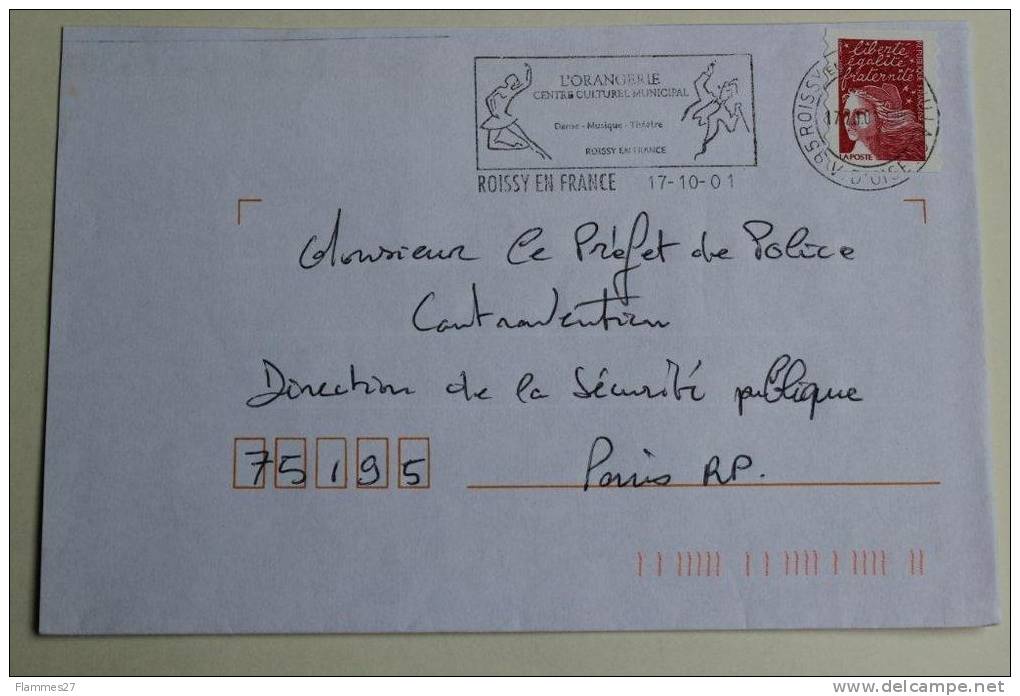 L'ORANGERIE
CENTRE CULTUREL MUNICIPAL
Danse - Musique - Théâtre
ROISSY EN FRANCE
ROISSY EN FRANCE 17-10-01
liberté
égalité
fraternité
LA POSTE
95 ROISSY
D'OISE
Monsieur Le Préfet de Police
Contravention
Direction de la Sécurité publique
75195 Paris RP.
Flammes27
www.delcampe.net